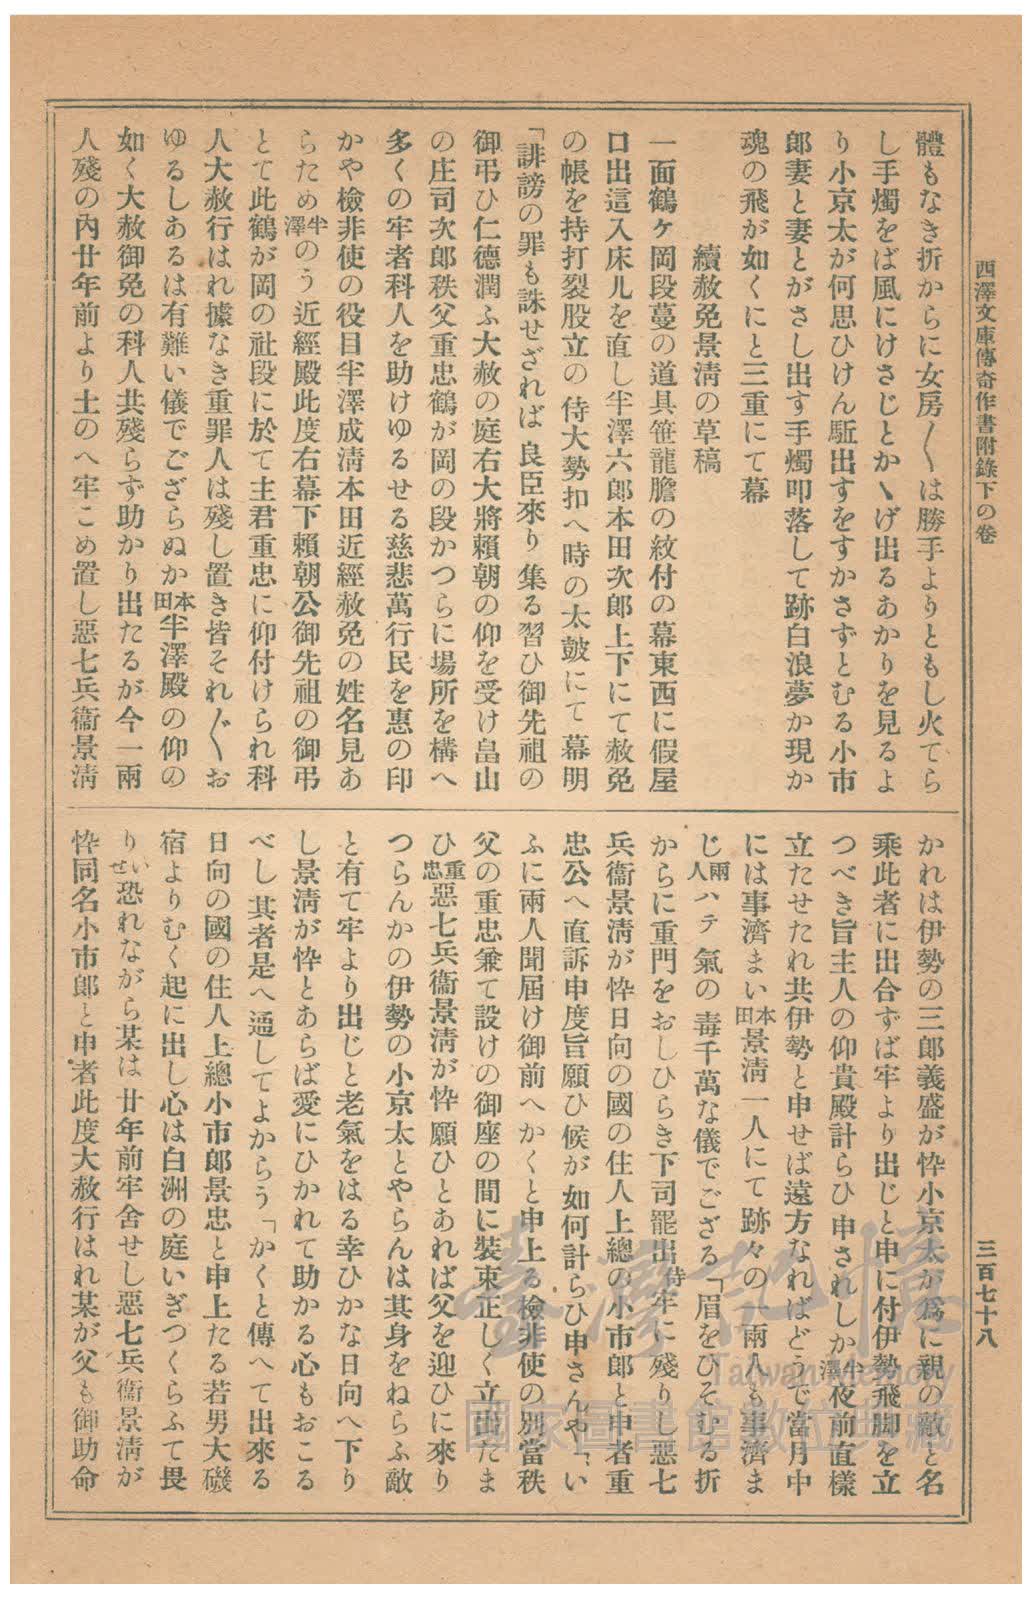 西澤文庫傳奇作書附錄下の卷
三百七十八
體もなき折からに女房〳〵は勝手よりともし火てら
し手燭をば風にけさじとかゝげ出るあかりを見るよ
り小京太が何思ひけん駈出すをすかさずとむる小市
郎妻と妻とがさし出す手燭叩落して跡白浪夢か現か
魂の飛が如くにと三重にて幕
續赦免景淸の草稿
一面鶴ヶ岡段蔓の道具笹龍膽の紋付の幕東西に假屋
口出這入床几を直し半澤六郎本田次郎上下にて赦免
の帳を持打裂股立の侍大勢扣へ時の太皷にて幕明
「誹謗の罪も誅せざれば良臣來り集る習ひ御先祖の
御弔ひ仁德潤ふ大赦の庭右大將賴朝の仰を受け畠山
の庄司次郎秩父重忠鶴が岡の段かつらに場所を構へ
多くの牢者科人を助けゆるせる慈悲萬行民を惠の印
かや檢非使の役目半澤成淸本田近經赦免の姓名見あ
らため半澤のう近經殿此度右幕下賴朝公御先祖の御弔
とて此鶴が岡の社段に於て主君重忠に仰付けられ科
人大赦行はれ據なき重罪人は殘し置き皆それ〴〵お
ゆるしあるは有難い儀でござらぬか本田半澤殿の仰の
如く大赦御免の科人共殘らず助かり出たるが今一兩
人殘の內廿年前より土のへ牢こめ置し惡七兵衞景淸
かれは伊勢の三郎義盛が悴小京太が爲に親の敵と名
乘此者に出合ずば牢より出じと申に付伊勢飛脚を立
つべき旨主人の仰貴殿計らひ申されしか半澤夜前直樣
立たせたれ共伊勢と申せば遠方なればどうで當月中
には事濟まい本田景淸一人にて跡々の一兩人も事濟ま
じ兩人ハテ氣の毒千萬な儀でござる「眉をひそむる折
からに重門をおしひらき下司罷出侍牢に殘りし惡七
兵衞景淸が悴日向の國の住人上總の小市郎と申者重
忠公へ直訴申度旨願ひ候が如何計らひ申さんや「い
ふに兩人聞屆け御前へかくと申上る檢非使の別當秩
父の重忠兼て設けの御座の間に裝束正しく立出たま
ひ重忠惡七兵衞景淸が悴願ひとあれば父を迎ひに來り
つらんかの伊勢の小京太とやらんは其身をねらふ敵
と有て牢より出じと老氣をはる幸ひかな日向へ下り
し景淸が悴とあらば愛にひかれて助かる心もおこる
べし其者是へ通してよからう「かくと傳へて出來る
日向の國の住人上總小市郎景忠と申上たる若男大磯
宿よりむく起に出し心は白洲の庭いぎつくらふて畏
りいせ恐れながら某は廿年前牢舍せし惡七兵衞景淸が
悴同名小市郎と申者此度大赦行はれ某が父も御助命
臺灣記憶
Taiwan Memory
國家圖書館數位典藏